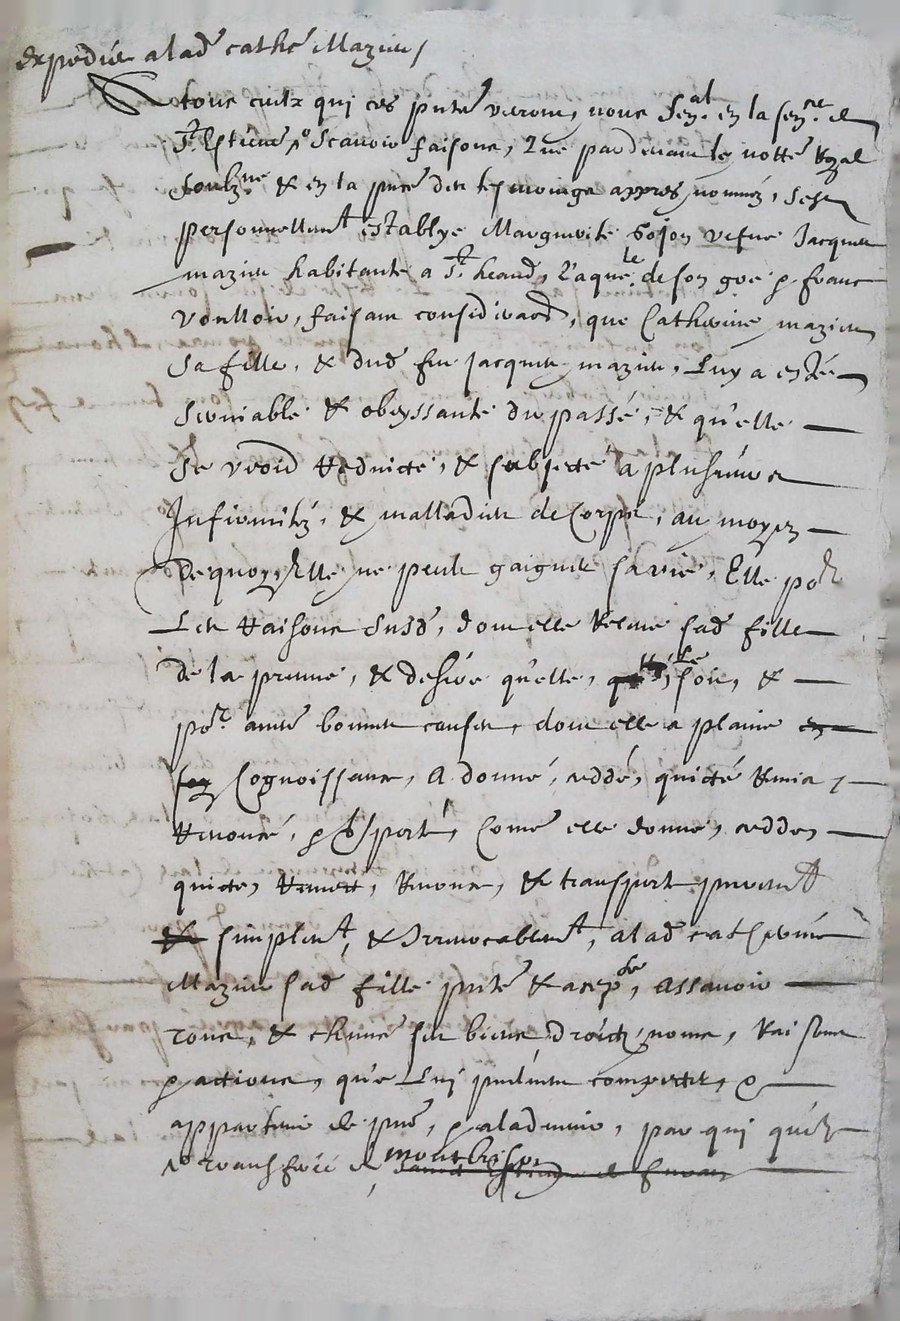 expediée a lad cathe Mazier
A tous ceulx qui ces pntes verront, nous Senal en la senee de
St Estienne, Scavoir faisons, Que pardevant le notte Royal
soubzne & en la pnce des tesmoings appres nommez, sest
personnellemt establye Margueritte vefve Jacques
mazier habitante a St heand, Laquelle de son gre & franc
voulloir, faisant considerаon, que Catherine mazier
sa fille, & dud feu Jacques mazier, Luy a esté
serviable & obeyssante du passé, & qu'elle
se void reduicte, & subjecte a plusieurs
Infirmités, & malladies de Corps, au moyen
Dequoy, Elle ne peult gaigner sa vie, Elle por
Les raisons susd, dont elle Releve sad fille
de la preuve, & desire qu'elle, soit, &
por aultres bonnes causes, dont elle a plaine en
foy Cognoissance, A donné, ceddé, quicté Remis,
Renoncé, & tsporté, Come elle donne, cedde,
quicte, Remect, Renonce, & transporte puremt
& simplemt, & Irrevocablemt, a lad catherine
Mazier sad fille pnte & accepte, Assavoir
tous, & chuns ses biens droictz noms, Raisons
& actions, que Luy peulvent competer, &
appartenir de pnt, & a ladvenir, par qui quilz
de montbrison